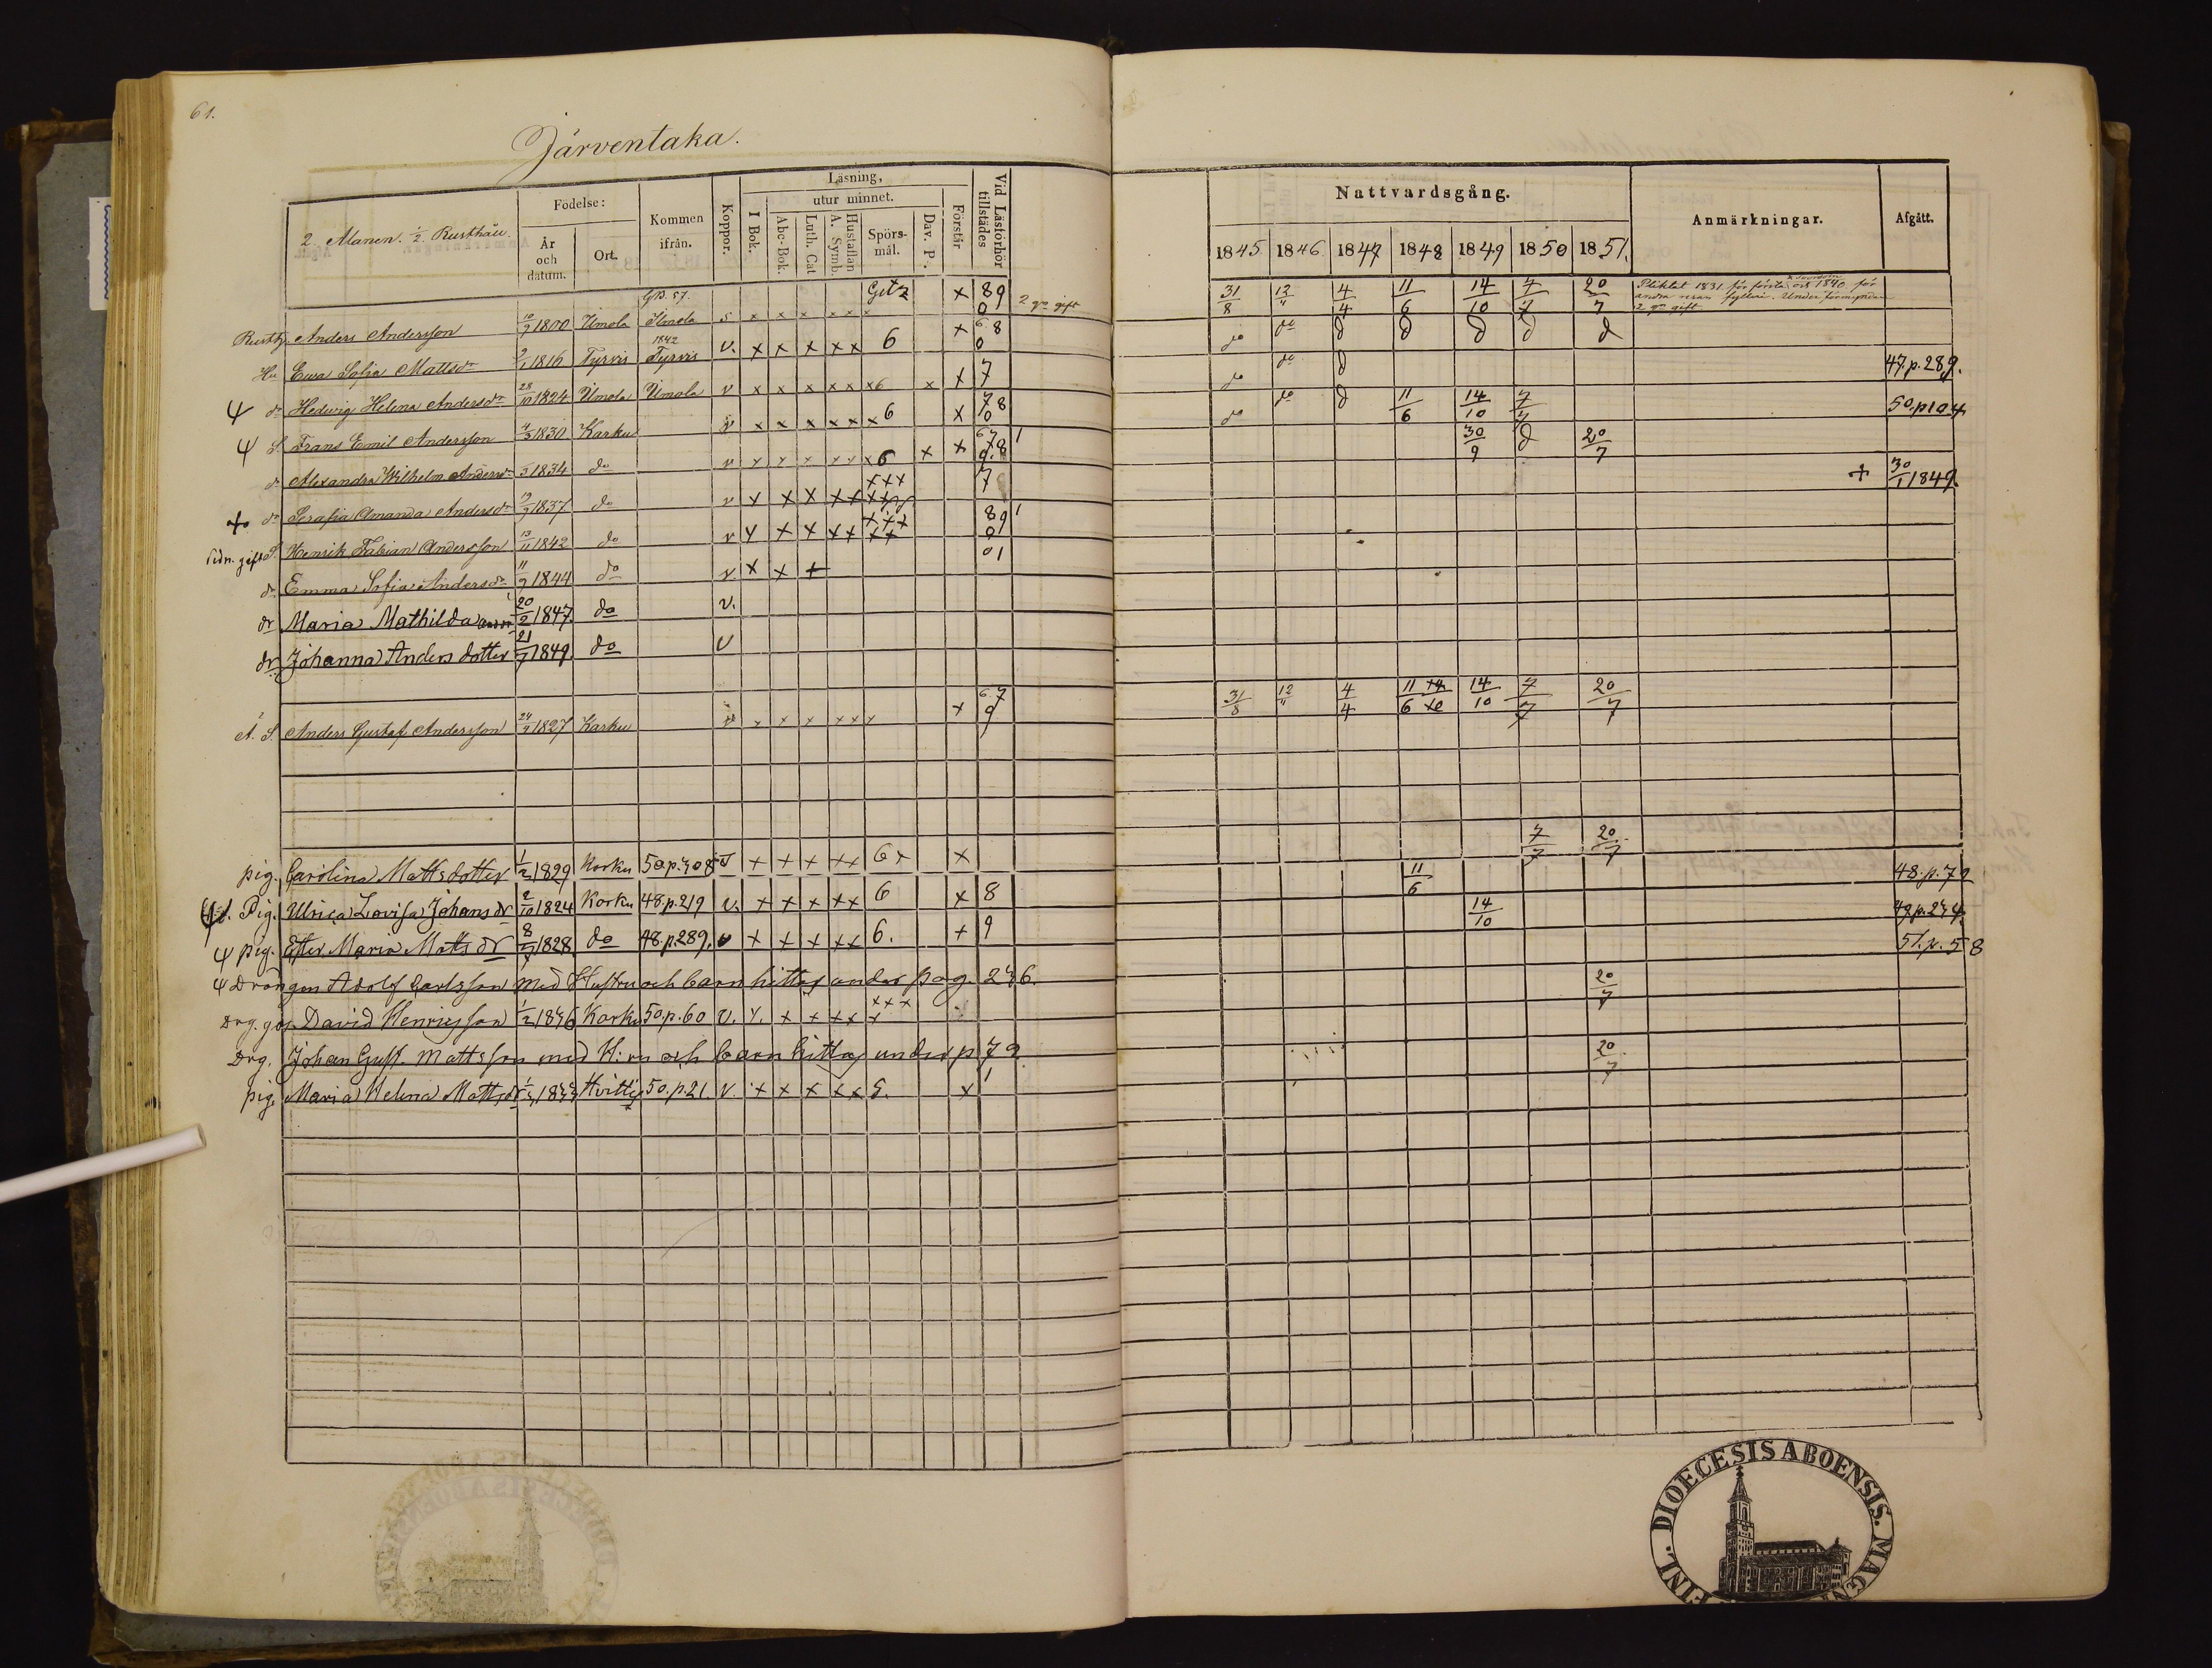 61.
Järventaka.
2 Manen. 1/2 Rusthåll.
Födelse:
År och datum.
Ort.
Kommen ifrån.
Koppor.
Läsning,
utur minnet.
I Bok.
Abc-Bok.
Luth. Cat
Hustaflan A. Symb.
Spörsmål.
Dav. P.
Förstår
Vid Läsförhör tillstädes
Nattvardsgång.
1845 1846 1847 1848 1849 1850 1851.
Anmärkningar.
Afgått.
Anders Andersson 10/9 1800 Ümola s x x x x x x x 89 0 2 gr gift 31/8 12/" 4/4 11/6 14/10 7/7 20/7 Pliktat 1831 för första och 1840 för andra resan fylleri. Under 2 gr gift
Hu Ewa Sofia Mattsdr 1816 Tyrvis 1842 Tyrvis v. x x x x x 6 x 68 0 do do d d d d d
Ψ dr Hedwig Helena Andersdr 28/10 1824 Ümola Ümola v x x x x x x6 x x 7 7 do do d 47.p.289.
Ψ S. Frans Emil Andersson 4/3 1830 Karku v x x x x x x6 x 78 10 do do d 11/6 14/10 7/7 50.p104
dr Alexandra Wilhelm Andersdr 1834 do v x x x x x x6 x x 30/9 d 20/7
dr Serafia Amanda Andersdr 19/9 1837 do v x x x x x 7 7 + 30/1 1849.
S. Henrik Fabian Andersson 13/11 1842 do v x x x x x x x 89 0 1
dr Emma Sofia Andersdr 11/9 1844 do v x x x 01
dr Maria Mathilda 20/2 1847. do v.
dr Johanna Anders dotter 21/7 1849. do v
Å. S. Anders Gustaf Andersson 24/9 1827 Karku v x x x x x x x 67 9 31/8 12/" 4/4 11/6 14/10 7/7 20/7
pig. Carolina Matts dotter 1/2 1829 Karku 50.p.308 v x x x x x 6x x 7/7 20/7
Pig. Ulrica Lovisa Johans dr 2/10 1824 Karku 48.p.219 v. x x x x x 6 x 8 11/6 48.p.79
Ψ pig. Ester Maria Matts dr 8/7 1828. do 48.p.289. v x x x x x 6. x 9 14/10 49.p.234.
Ψ Drängen Adolf Carlsson med Hustru och barn hittas under pag. 236. 51.p.58
Drg. gos. David Henricsson 1/2 1836 Karku 50.p.60 v. x. x x x x x x x x 20/7
Drg. Johan Gust. Mattsson med H:ru och barn hittas under p 79
pig. Maria Helena Mattsdr 1833 Hvittis 50.p.21. v. x x x x x 5. x 1 20/7
DIOECESIS ABOENSIS. MAGNI